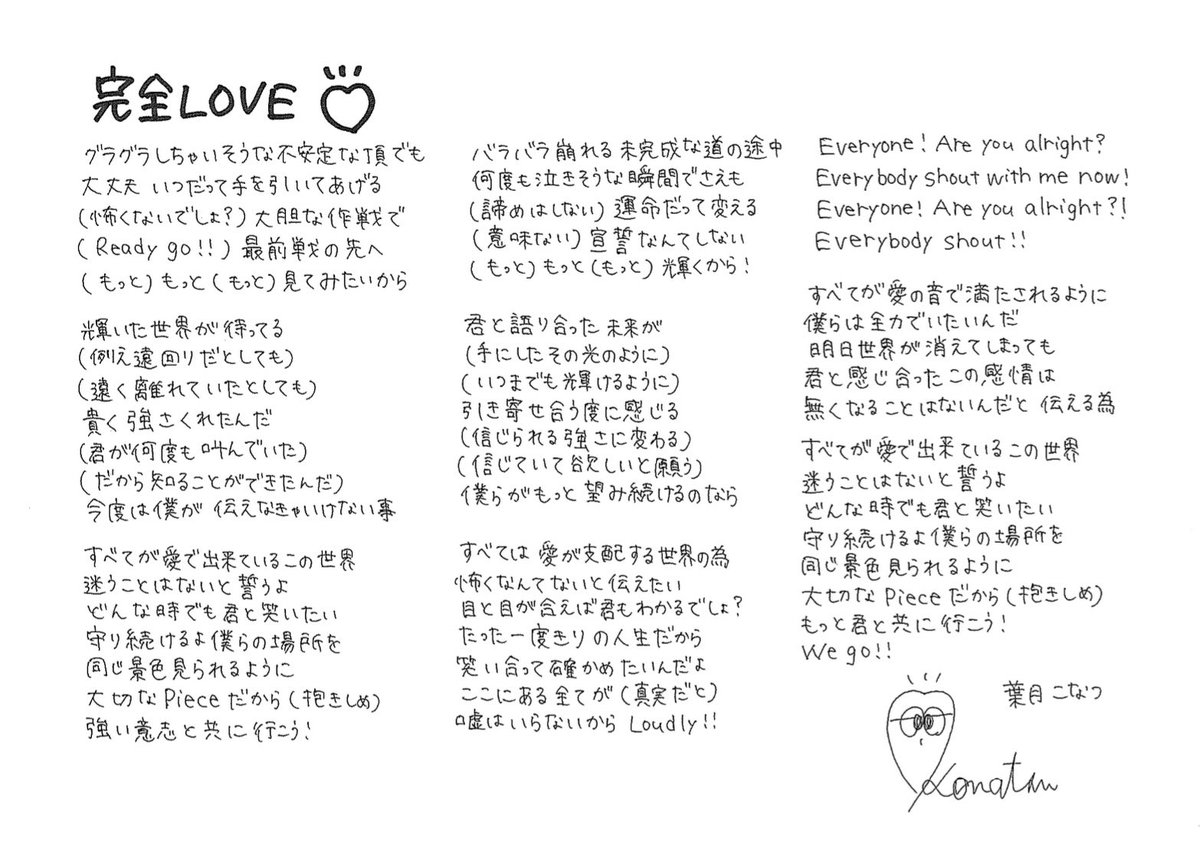 完全LOVE
グラグラしちゃいそうな不安定な頂でも
大丈夫 いつだって手を引いてあげる
(怖くないでしょ?) 大胆な作戦で
(Ready go!!) 最前戦の先へ
(もっと) もっと (もっと) 見てみたいから
輝いた世界が待ってる
(例え遠回りだとしても)
(遠く離れていたとしても)
貴く強さくれたんだ
(君が何度も叫んでいた)
(だから知ることができたんだ)
今度は僕が 伝えなきゃいけない事
すべてが愛で出来ているこの世界
迷うことはないと誓うよ
どんな時でも君と笑いたい
守り続けるよ僕らの場所を
同じ景色見られるように
大切なPieceだから(抱きしめ)
強い意志と共に行こう!
バラバラ崩れる未完成な道の途中
何度も泣きそうな瞬間でさえも
(諦めはしない) 運命だって変える
(意味ない) 宣誓なんてしない
(もっと) もっと (もっと) 輝くから!
君と語り合った未来が
(手にしたその光のように)
(いつまでも輝けるように)
引き寄せ合う度に感じる
(信じられる強さに変わる)
(信じていて欲しいと願う)
僕らがもっと望み続けるのなら
すべては 愛が支配する世界の為
怖くなんてないと伝えたい
目と目が合えば君もわかるでしょ?
たった一度きりの人生だから
笑い合って確かめたいんだよ
ここにある全てが (真実だと)
嘘はいらないから Loudly!!
Everyone! Are you alright?
Everybody shout with me now!
Everyone! Are you alright?!
Everybody shout!!
すべてが愛の音で満たされるように
僕らは全力でいたいんだ
明日世界が消えてしまっても
君と感じ合ったこの感情は
無くなることはないんだと 伝える為
すべてが愛で出来ているこの世界
迷うことはないと誓うよ
どんな時でも君と笑いたい
守り続けるよ僕らの場所を
同じ景色見られるように
大切なPieceだから(抱きしめ)
もっと君と共に行こう!
We go!!
葉月こなつ
Konatsu